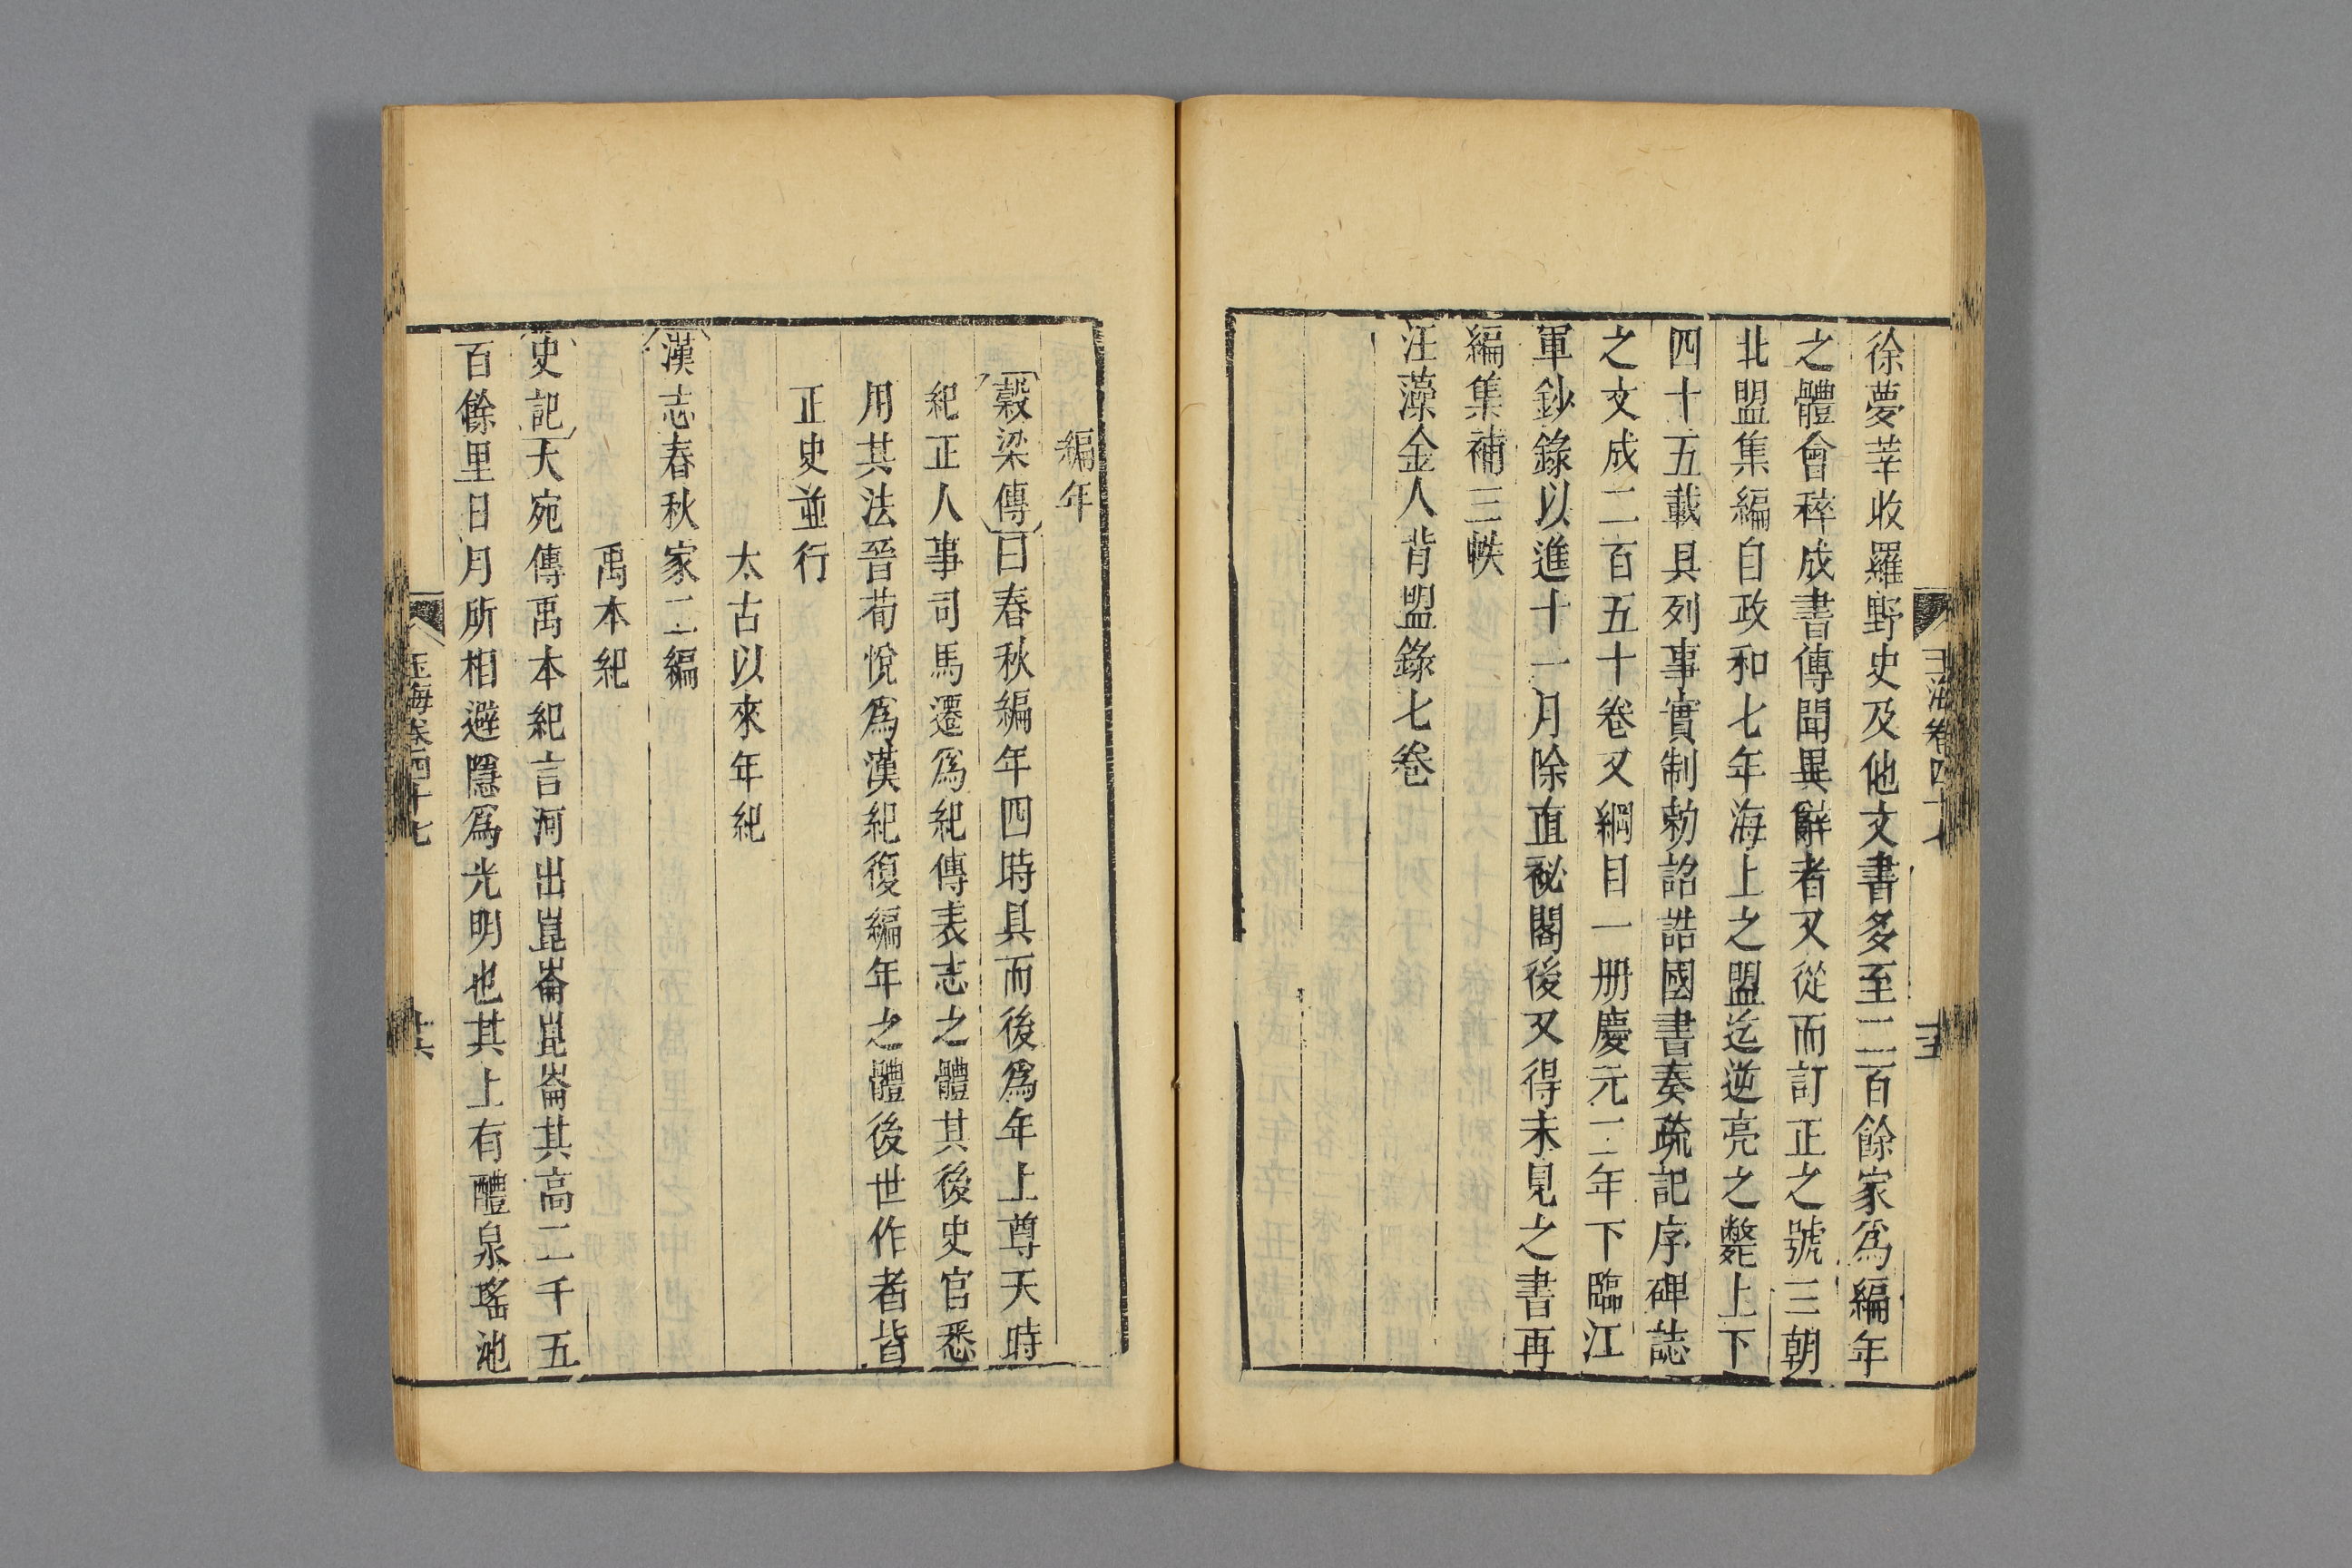 徐夢莘收羅野史及他文書多至二百餘家爲編年
之體會稡成書傳聞異辭者又從而訂正之號三朝
北盟集編自政和七年海上之盟迄逆亮之斃上下
四十五載具列事實制勅詔誥國書奏疏記序碑誌
之文成二百五十卷又綱目一册慶元二年下臨江
軍鈔錄以進十一月除直祕閣後又得未見之書再
編集補三帙
汪藻金人背盟錄七卷
編年
穀梁傳曰春秋編年四時具而後爲年上尊天時
紀正人事司馬遷爲紀傳表志之體其後史官悉
用其法晉荀悅爲漢紀復編年之體後世作者皆
正史並行
太古以來年紀
漢志春秋家二編
禹本紀
史記大宛傳禹本紀言河出崑崙崑崙其高二千五
百餘里日月所相避隱爲光明也其上有醴泉瑤池
玉海卷四十七